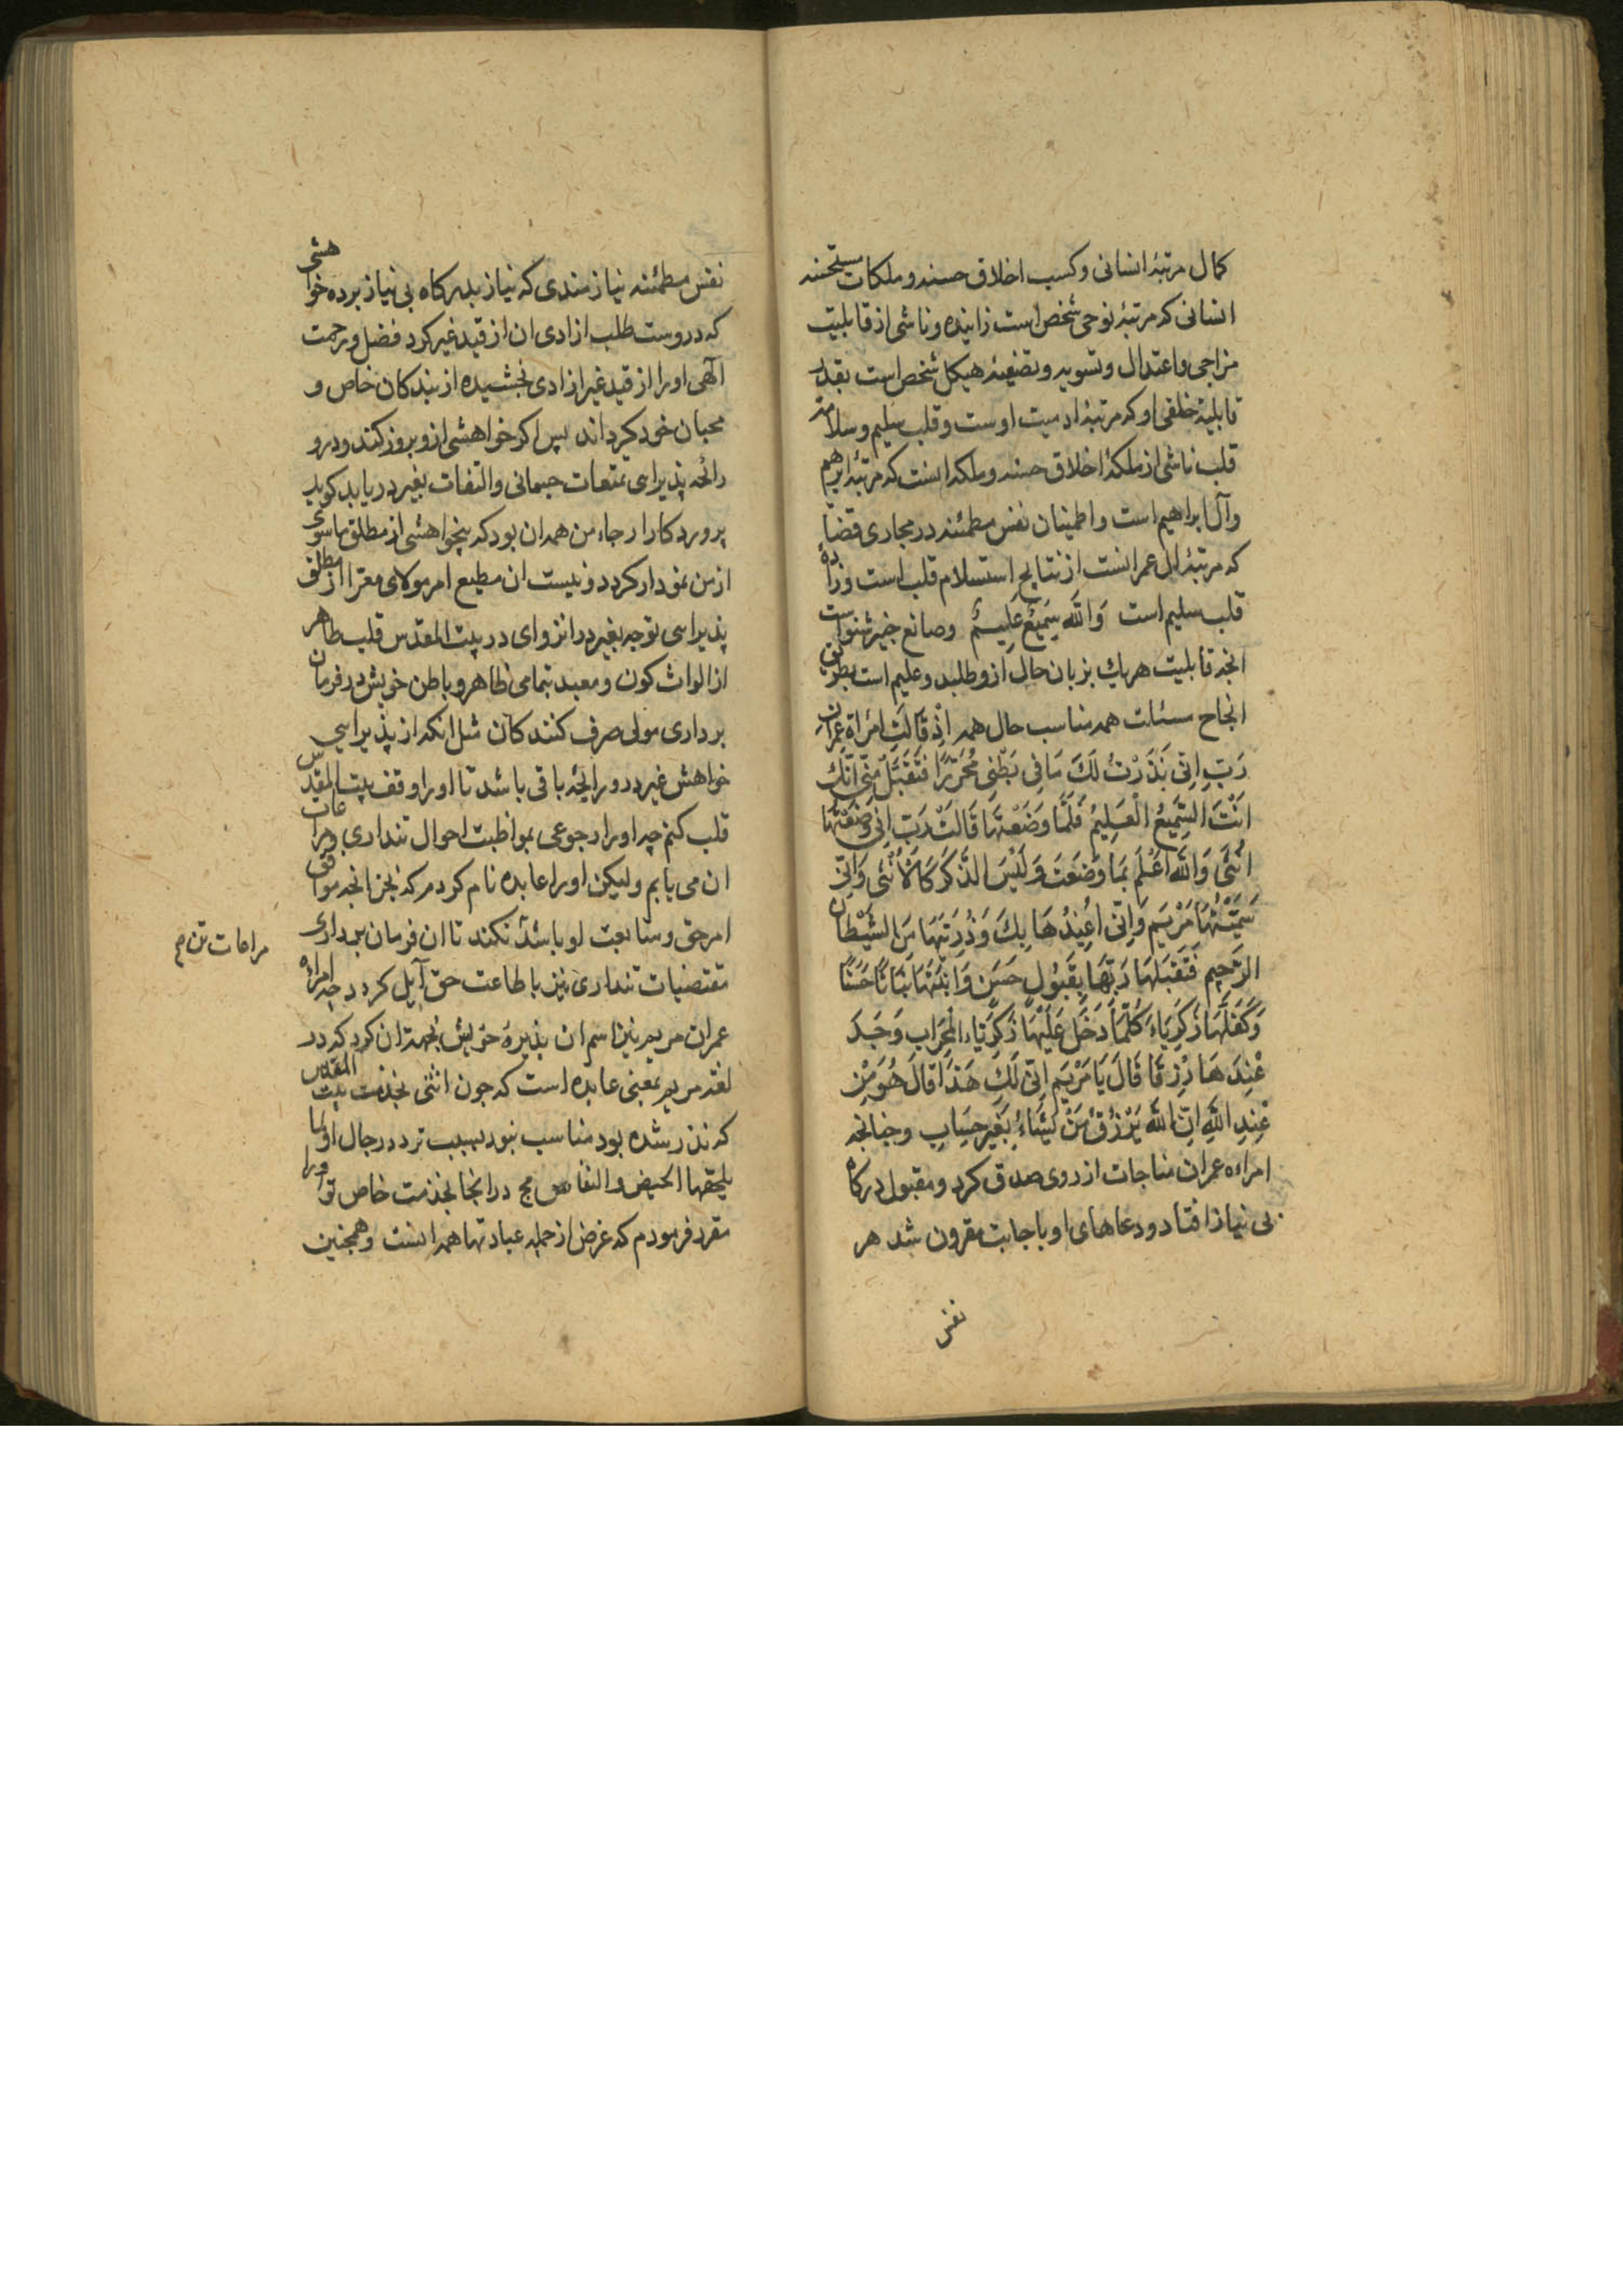 كمال مرتبۀ انسانی وكسب اخلاق حسنه وملكات مستحسنه
انسانی كه مرتبۀ نوحی شخص است زاینده وناشی از قابلیت
مزاجی واعتدال وتسویه وتصفیۀ هیكل شخص است بقدر
قابلیة خلقی او كه مرتبۀ ادمیت اوست وقلب سلیم وسلامة
قلب ناشی از ملكۀ اخلاق حسنه وملكه انست كه مرتبۀ ابرهیم
وآل ابراهیم است واطمینان نفس مطمئنه در مجاری قضا
كه مرتبۀ ال عمرانست از نتایج استسلام قلب است وزادۀ
قلب سلیم است وَاللّه سَمِیْعٌ عَلِیْمٌ وصانع خبیر شنواست
انچه قابلیت هریك بزبان حال ازو طلبد وعلیم است بطریق
انجاح مسئلت همه مناسب حال همه اِذْ قَالَتِ امْرَاَة عِمْرَان
رَبِّ اِنِّی نَذَرْتُ لَكَ مَا فِی بَطْنِی مُحَرَّرًا فَتَقَبَّلْ مِنِّی اِنَّكَ
اَنْتَ السَّمِیْعُ الْعَلِیْمُ فَلَمَّا وَضَعَتْهَا قَالَتْ رَبِّ اِنِّی وَضَعْتُهَا
اُنْثَی وَاللّه اَعْلَم بِمَا وَضَعَتْ وَلَیْسَ الذَّكَر كَالْاُنْثَی وَاِنِّی
سَمَّیْتُهَا مَرْیَم وَاِنِّی اُعِیْذُهَا بِكَ وَذُرِّیَّتَهَا مِنَ الشَّیْطَان
الرَّجِیم فَتَقَبَّلَهَا رَبُّهَا بِقَبُول حَسَن وَاَنْبَتَهَا نَبَاتًا حَسَنًا
وَكَفَّلَهَا زَكَرِیَّاء كُلَّمَا دَخَلَ عَلَیْهَا زَكَرِیَّاء الْمِحْرَاب وَجَدَ
عِنْدَهَا رِزْقًا قَالَ یَا مَرْیَم اَنَّی لَكِ هَذَا قَالَ هُوَ مِنْ
عِنْدِ اللّهِ اِنَّ اللّه یَرْزُقُ مَنْ یَّشَاءُ بِغَیْرِ حِسَابٍ وچنانچه
امراءه عمران مناجات از روی صدق كرد ومقبول دركاه
بی نیاز افتاد ودعاهای او باجابت مقرون شد هر
نفس
نفس مطمئنه نیازمندی كه نیاز بدركاه بی نیاز برده خواهشی
كه دروست طلب ازادی ان از قید غیر كرد فضل ورحمت
آلهی اورا از قید غیر ازادی بخشیده از بندكان خاص و
محبان خود كرداند پس اكر خواهشی ازو بروز كند ودرو
رائحۀ پذیرایی تمتعات جسمانی والتفات بغیر دریابد كوید
پروردكارا رجاء من همه ان بود كه بیخواهشی از مطلق ماسوی
از من نمودار كردد ونیست ان مطیع امر مولای معرا از مطلق
پذیرایی توجه بغیر در انزوای در بیت المقدس قلب طاهر
از الواث كون ومعبد تمامی ظاهر وباطن خویش در فرمان
برداری مولی صرف كنندكان مثل انكه از پذیرایی
خواهش غیر درو رایحۀ باقی باشد تا اورا وقف بیت المقدس
قلب كنم چه اورا رجوعی بمواظبت احوال تنداری ومراعات
ان می یابم ولیكن اورا عابده نام كردم كه بجز انچه موافق
امر حق ومتابعت او باشد نكند تا ان فرمان برداری
مقتضیات تنداری نیز با طاعت حق آیل كردد چه امراءۀ
عمران مریم نیز اسم ان نذیرۀ خویش بجهة ان كرد كه در
لغة مریم بمعنی عابده است كه چون انثی بخدمت بیت المقدس
كه نذر شده بود مناسب نبود بسبب تردد رجال اولما
یلحقها الحیض والنفاس مج در انجا بخدمت خاص تو اورا
مقرر فرمودم كه غرض از جمله عبادتها همه انست وهمچنین
مراعات تن م